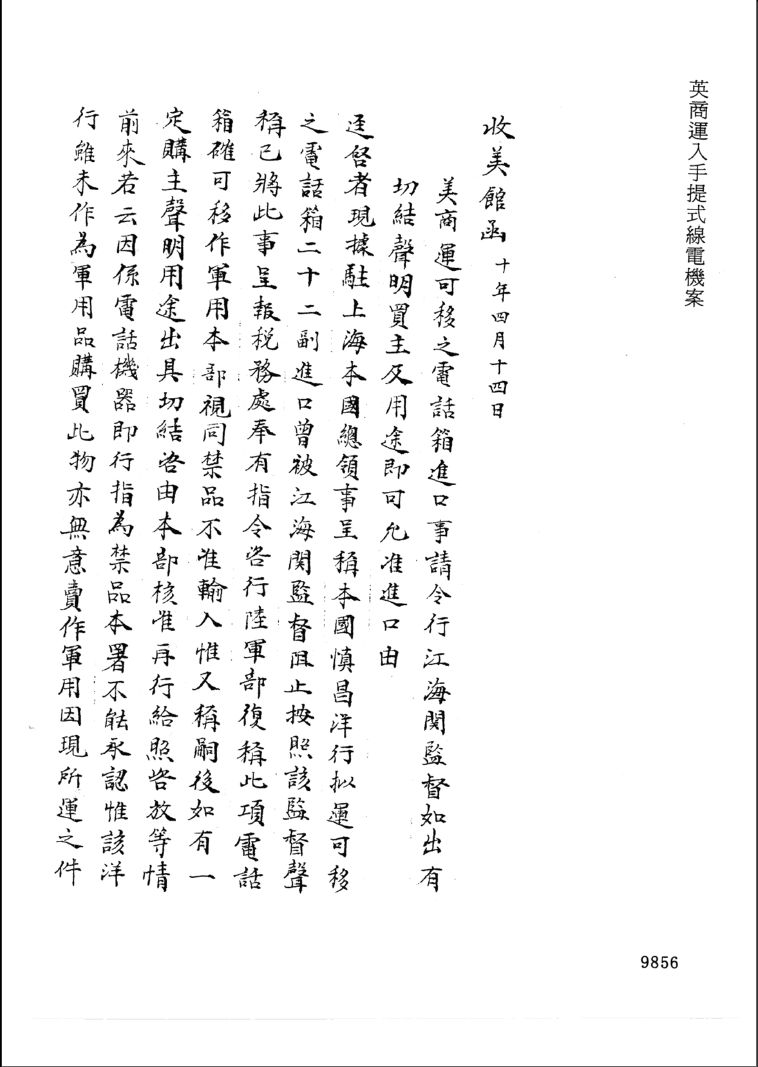 英商運入手提式線電機案
收美館函 十年四月十四日
美商運可移之電話箱進口事請令行江海関監督如出有
切結聲明買主及用途即可允准進口由
逕啓者現據駐上海本國總領事呈稱本國慎昌洋行拟運可移
之電話箱二十二副進口曾被江海関監督阻止按照該監督聲
稱已將此事呈報税務處奉有指令咨行陸軍部復稱此項電話
箱確可移作軍用本部視同禁品不准輸入惟又稱嗣後如有一
定購主聲明用途出具切結咨由本部核准再行給照咨放等情
前來若云因係電話機器即行指為禁品本署不能承認惟該洋
行雖未作為軍用品購買此物亦無意賣作軍用因現所運之件
9856